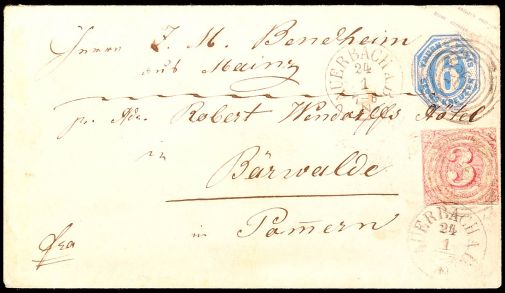 Herrn J. M. Bendheim
aus Mainz
pr. Adr. Robert Wendorffs Hôtel
in
Bärwalde
in Pom̅ern
fco
AUERBACH A.B.
24
1
6
3
AUERBACH A.B.
24
1